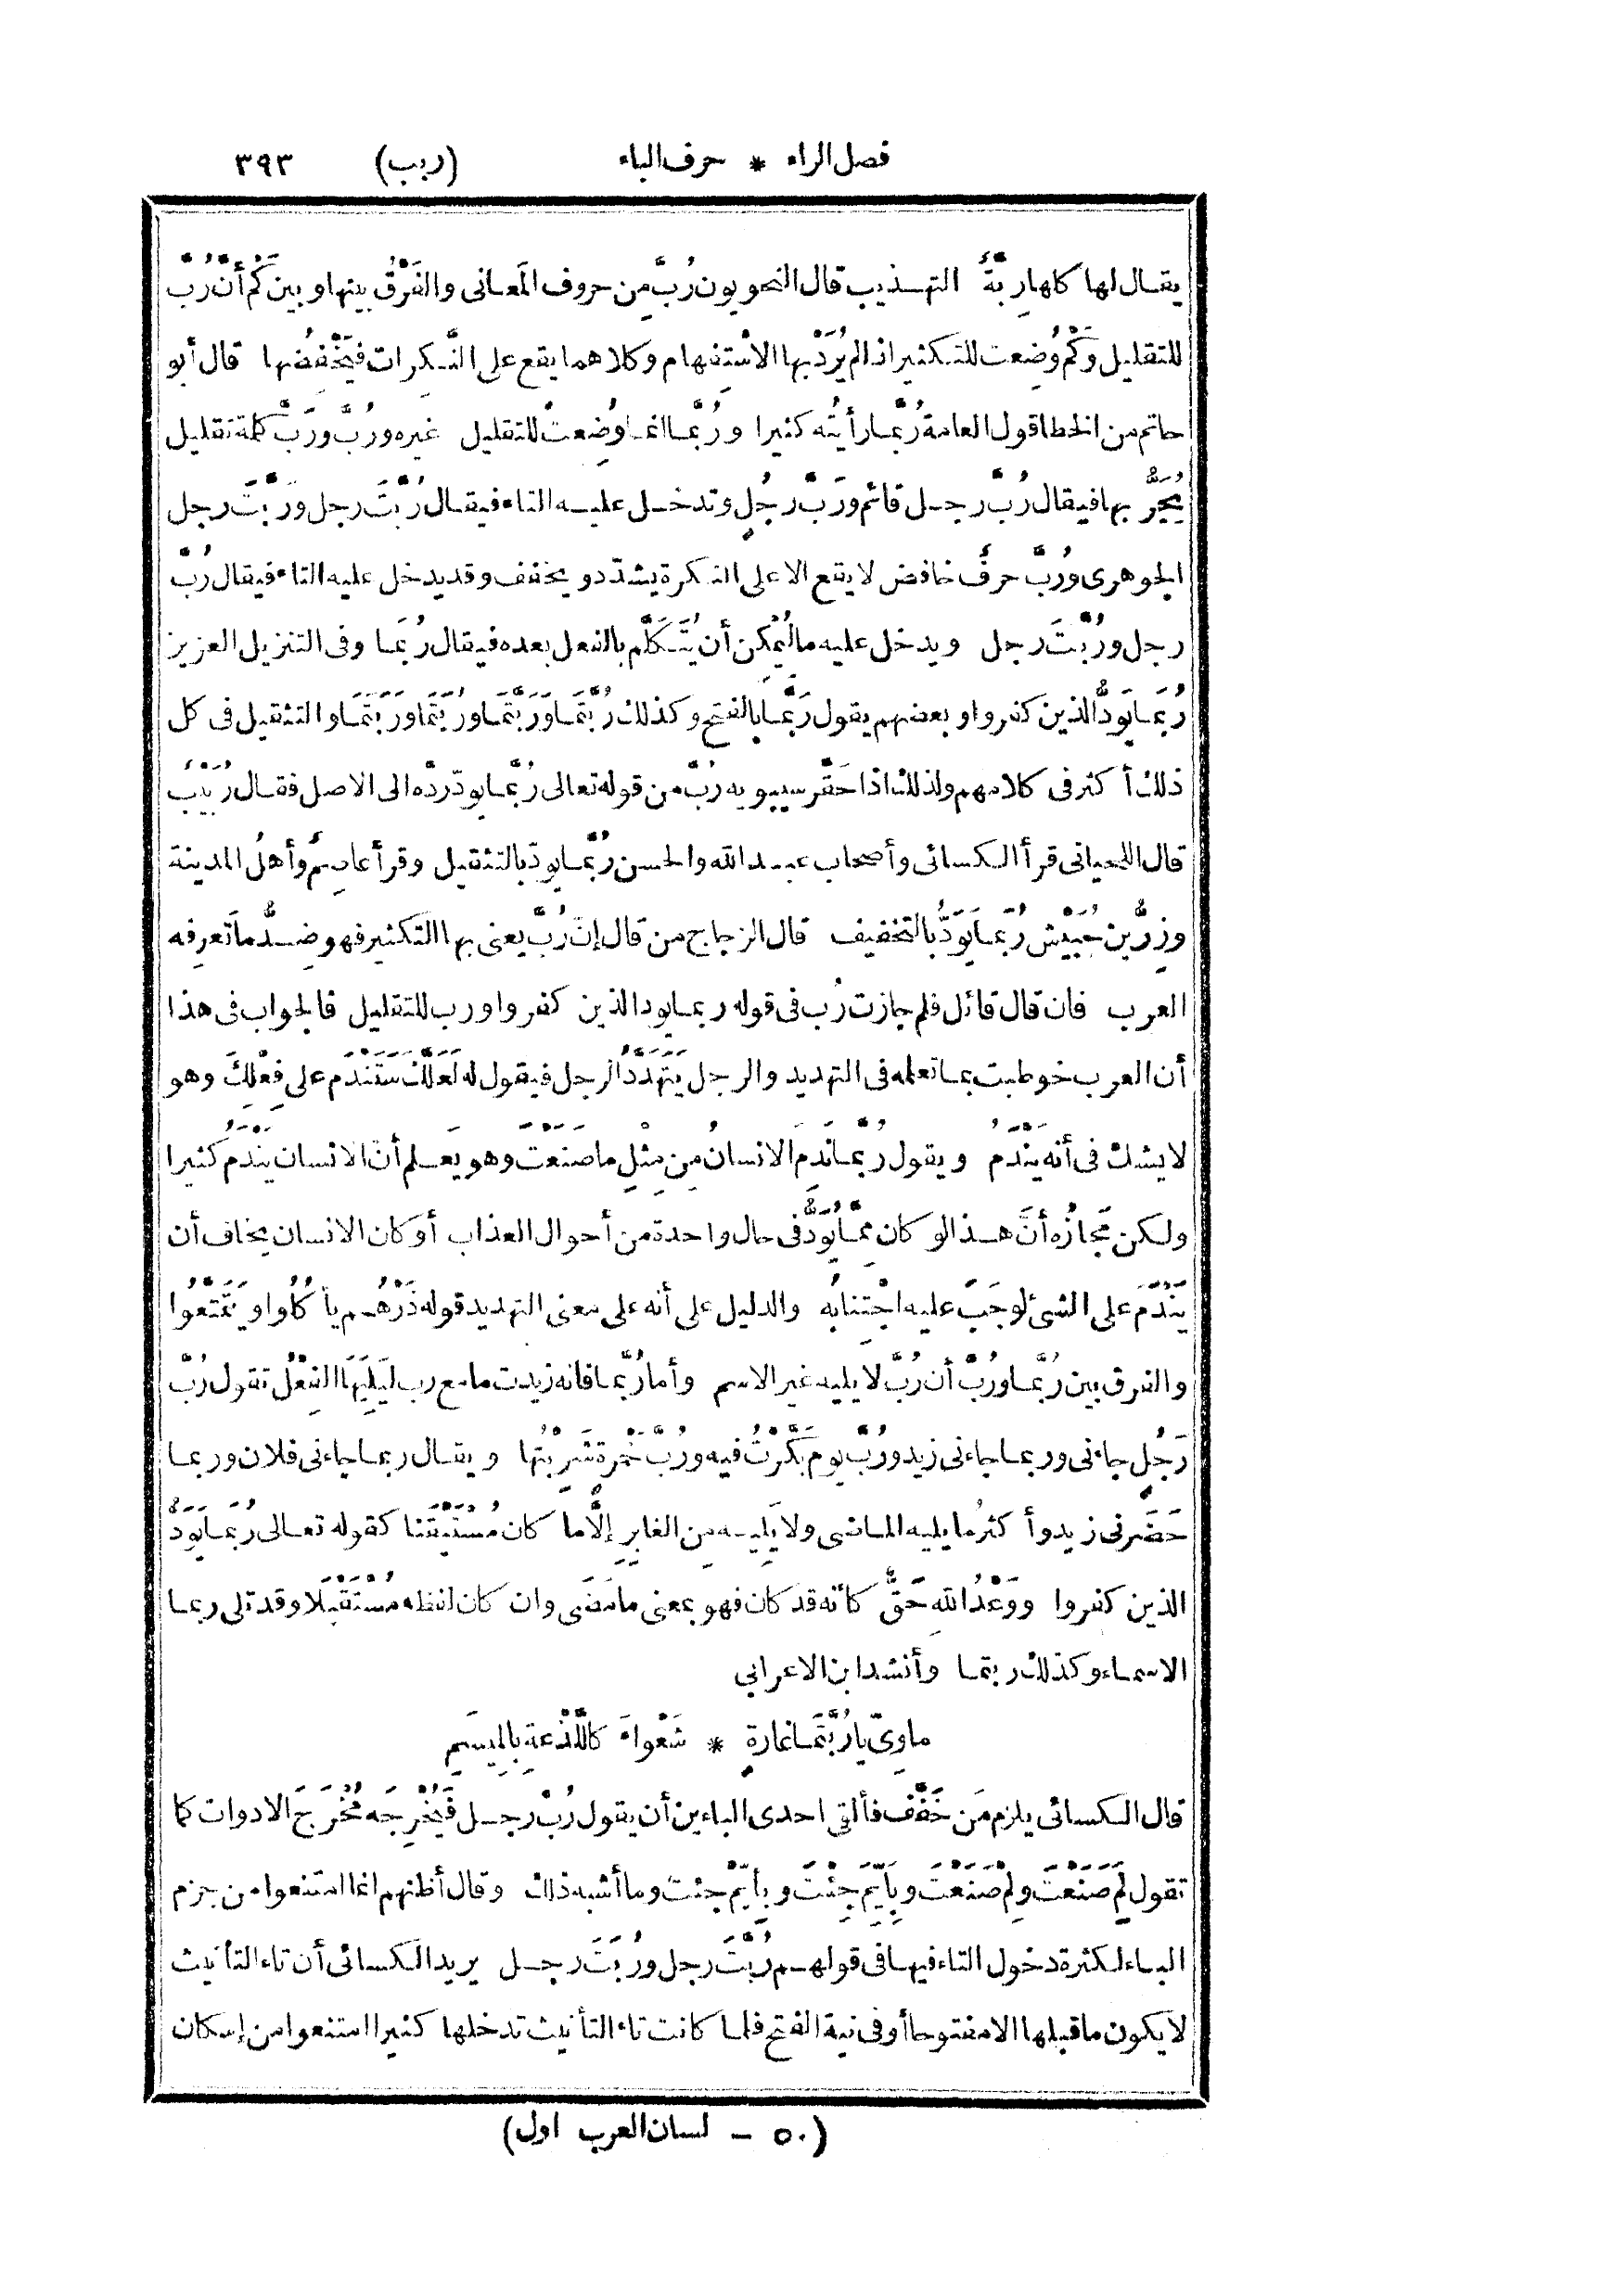 فصل الراء * حرف الباء (ربب) ٣٩٣
يقال لها كلها رِبَّةٌ التهذيب قال النحويون رُبَّ مِن حروف المَعانى والفَرْقُ بينها وبين كَمْ أنَّ رُبَّ
للتقليل وكَمْ وُضِعت للتكثير اذا لم يُرَدْ بها الاسْتِفهام وكلاهما يقع على النَّكرات فيَخْفِضُها قال أبو
حاتم من الخطا قول العامة رُبَّما رأيتُه كثيرا ورُبَّما انما وُضِعتْ للتقليل غيره ورُبَّ ورَبَّ كلمة تقليل
يُجَرُّ بها فيقال رُبَّ رجل قائم ورَبَّ رجُلٍ وتدخل عليه التاء فيقال رُبَّتَ رجل ورَبَّتَ رجل
الجوهرى ورُبَّ حرفٌ خافض لا يقع الا على النكرة يشدّد ويخفف وقد يدخل عليه التاء فيقال رُبَّ
رجل ورُبَّتَ رجل ويدخل عليه ما لُيمْكِن أن يُتَكَلَّم بالفعل بعده فيقال رُبَما وفى التنزيل العزيز
رُبَما يَوَدُّ الذين كفروا وبعضهم يقول رَبَّما بالفتح وكذلك رُبَّتَما ورَبَّتَما ورُبَتَما ورَبَتَما والتثقيل فى كل
ذلك أكثر فى كلامهم ولذلك اذا حَقَّر سيبويه رُبَّ من قوله تعالى رُبَّما يودّ ردّه الى الاصل فقال رُبَيْبٌ
قال اللحيانى قرأ الكسائى وأصحاب عبد الله والحسن رُبَّما يودّ بالتثقيل وقرأ عاصِمٌ وأهلُ المدينة
وزِرُّ بن حُبَيْش رُبَما يَوَدُّ بالتخفيف قال الزجاج من قال إنّ رُبَّ يعنى بها التكثير فهو ضِدُّ ما تَعرِفه
العرب فان قال قائل فلم جازت رُب فى قوله ربما يود الذين كفروا ورب للتقليل فالجواب فى هذا
أن العرب خوطبت بما تعلمه فى التهديد والرجل يَتَهَدَّدُ الرجل فيقول له لَعَلَّكَ سَتَنْدَم على فِعْلِكَ وهو
لا يشك فى أنه يَنْدَمُ ويقول رُبَّما نَدِمَ الانسانُ مِن مِثْلِ ما صَنَعْتَ وهو يَعلم أنّ الانسان يَنْدَمُ كثيرا
ولكن مَجازُه أنَّ هذا لو كان مِمَّا يُوَدُّ فى حال واحدة من أحوال العذاب أو كان الانسان يخاف أن
يَنْدَمَ على الشئ لوجَبَ عليه اجْتِنابُه والدليل على أنه على معنى التهديد قوله ذَرْهُم يأكُلُوا ويَتَمَتَّعُوا
والفرق بين رُبَّما ورُبَّ أن رُبَّ لا يليه غير الاسم وأما رُبَّما فانه زيدت ما مع رب لِيَلِيَهَا الفِعْلُ تقول رُبَّ
رَجُلٍ جاءنى وربما جاءنى زيد ورُبَّ يومٍ بَكَّرْتُ فيه ورُبَّ خَمْرةٍ شَرِبْتُها ويقال ربما جاءنى فلان وربما
حَضَرنى زيد وأكثرُ ما يليه الماضى ولا يَلِيه مِن الغابِرِ إلَّا ما كان مُسْتَيْقَنا كقوله تعالى رُبَما يَوَدُّ
الذين كفروا ووَعْدُ اللهِ حَقٌّ كأنّه قد كان فهو بمعنى ما مَضَى وان كان لفظه مُسْتَقْبَلا وقد تلى ربما
الاسماء وكذلك ربتما وأنشد ابن الاعرابي
ماوِىَّ يا رُبَّتَما غارةٍ * شَعْواءَ كاللَّذْعةِ بالمِيسَمِ
قال الكسائى يلزم مَن خَفَّف فألقى احدى الباءين أن يقول رُبْ رجل فيُخْرِجَه مُخْرَجَ الادوات كما
تقول لِمَ صَنَعْتَ ولِمْ صَنَعْتَ وبِأَيِّمَ جِئْتَ وبِأَيِّمْ جئت وما أشبه ذلك وقال أظنهم انما امتنعوا من جزم
الباء لكثرة دخول التاء فيها فى قولهم رُبَّتَ رجل ورُبَتَ رجل يريد الكسائى أن تاء التأنيث
لا يكون ما قبلها الا مفتوحا أو فى نية الفتح فلما كانت تاء التأنيث تدخلها كثيرا امتنعوا من إسكان
(٥٠ - لسان العرب اول)